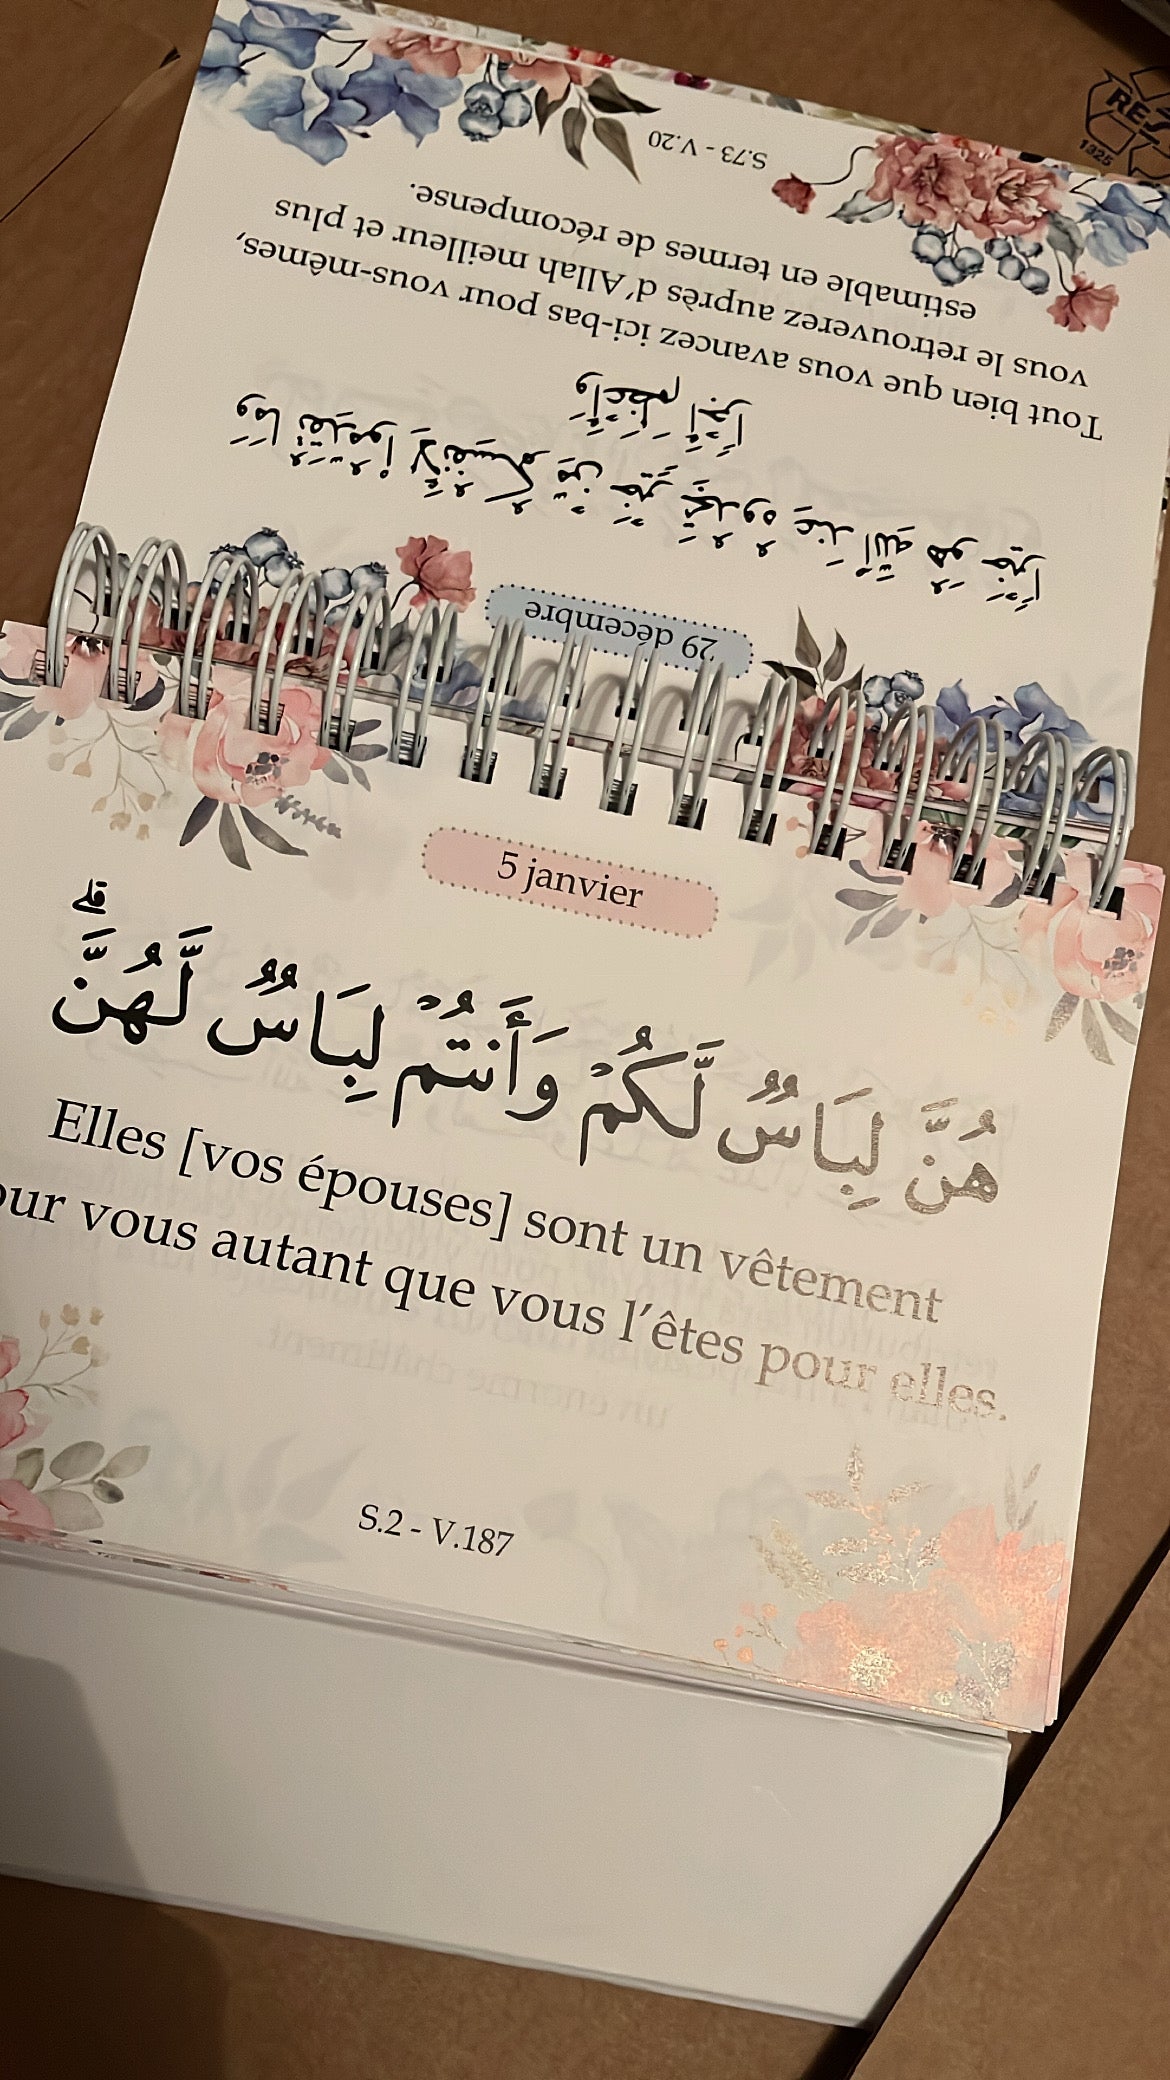 S.73 - V.20
Tout bien que vous avancez ici-bas pour vous-mêmes,
vous le retrouverez auprès d'Allah meilleur et plus
estimable en termes de récompense.
29 décembre
وَمَا تُقَدِّمُوا۟ لِأَنفُسِكُم مِّنْ خَيْرٍ تَجِدُوهُ عِندَ ٱللَّهِ هُوَ خَيْرًا
وَأَعْظَمَ أَجْرًا
5 janvier
هُنَّ لِبَاسٌ لَّكُمْ وَأَنتُمْ لِبَاسٌ لَّهُنَّ ۗ
Elles [vos épouses] sont un vêtement
our vous autant que vous l'êtes pour elles.
S.2 - V.187
1325